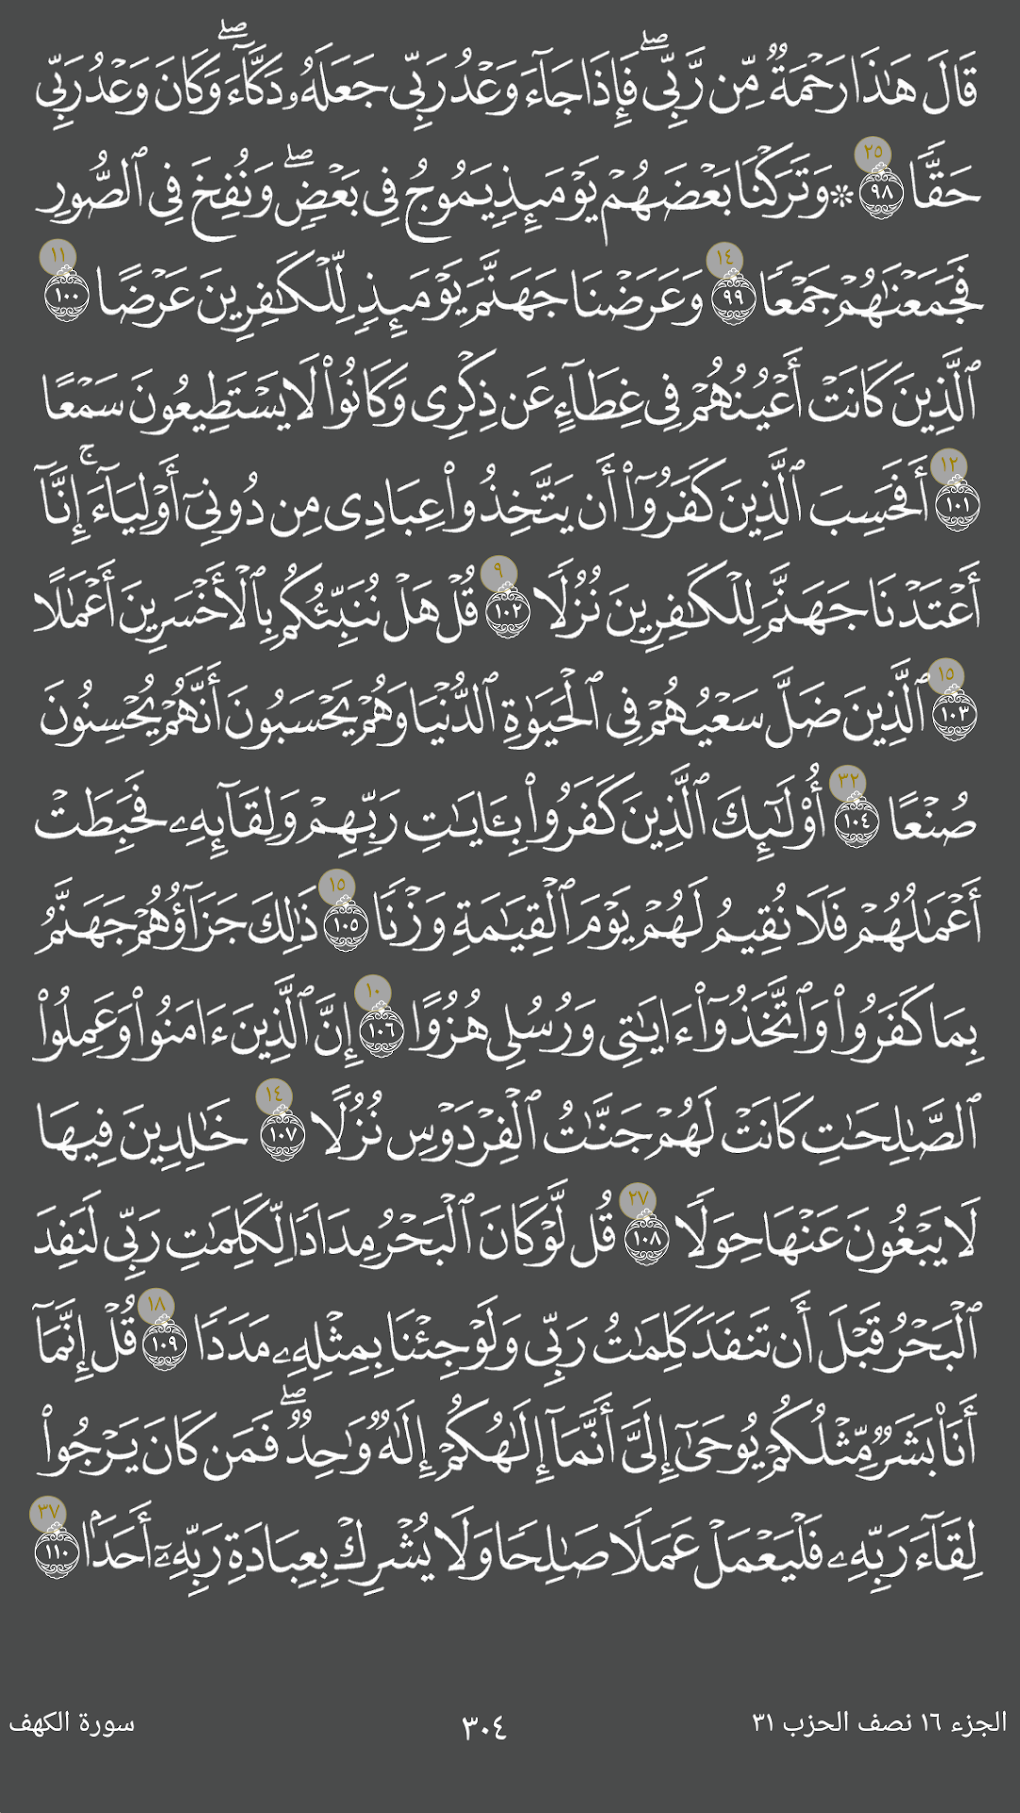 قَالَ هَـٰذَا رَحۡمَةٞ مِّن رَّبِّيۖ فَإِذَا جَآءَ وَعۡدُ رَبِّي جَعَلَهُۥ دَكَّآءَۖ وَكَانَ وَعۡدُ رَبِّي
حَقّٗا ٢٥ ٩٨ ۞ وَتَرَكۡنَا بَعۡضَهُمۡ يَوۡمَئِذٖ يَمُوجُ فِي بَعۡضٖۖ وَنُفِخَ فِي ٱلصُّورِ
فَجَمَعۡنَٰهُمۡ جَمۡعٗا ١٤ ٩٩ وَعَرَضۡنَا جَهَنَّمَ يَوۡمَئِذٖ لِّلۡكَٰفِرِينَ عَرۡضًا ١١ ١٠٠
ٱلَّذِينَ كَانَتۡ أَعۡيُنُهُمۡ فِي غِطَآءٍ عَن ذِكۡرِي وَكَانُواْ لَا يَسۡتَطِيعُونَ سَمۡعًا
١٢ ١٠١ أَفَحَسِبَ ٱلَّذِينَ كَفَرُوٓاْ أَن يَتَّخِذُواْ عِبَادِي مِن دُونِيٓ أَوۡلِيَآءَۚ إِنَّآ
أَعۡتَدۡنَا جَهَنَّمَ لِلۡكَٰفِرِينَ نُزُلٗا ٩ ١٠٢ قُلۡ هَلۡ نُنَبِّئُكُم بِٱلۡأَخۡسَرِينَ أَعۡمَٰلًا
١٥ ١٠٣ ٱلَّذِينَ ضَلَّ سَعۡيُهُمۡ فِي ٱلۡحَيَوٰةِ ٱلدُّنۡيَا وَهُمۡ يَحۡسَبُونَ أَنَّهُمۡ يُحۡسِنُونَ
صُنۡعًا ٣٢ ١٠٤ أُوْلَـٰٓئِكَ ٱلَّذِينَ كَفَرُواْ بِـَٔايَٰتِ رَبِّهِمۡ وَلِقَآئِهِۦ فَحَبِطَتۡ
أَعۡمَٰلُهُمۡ فَلَا نُقِيمُ لَهُمۡ يَوۡمَ ٱلۡقِيَٰمَةِ وَزۡنٗا ١٥ ١٠٥ ذَٰلِكَ جَزَآؤُهُمۡ جَهَنَّمُ
بِمَا كَفَرُواْ وَٱتَّخَذُوٓاْ ءَايَٰتِي وَرُسُلِي هُزُوًا ١٠ ١٠٦ إِنَّ ٱلَّذِينَ ءَامَنُواْ وَعَمِلُواْ
ٱلصَّٰلِحَٰتِ كَانَتۡ لَهُمۡ جَنَّـٰتُ ٱلۡفِرۡدَوۡسِ نُزُلًا ١٤ ١٠٧ خَٰلِدِينَ فِيهَا
لَا يَبۡغُونَ عَنۡهَا حِوَلٗا ٢٧ ١٠٨ قُل لَّوۡ كَانَ ٱلۡبَحۡرُ مِدَادٗا لِّكَلِمَٰتِ رَبِّي لَنَفِدَ
ٱلۡبَحۡرُ قَبۡلَ أَن تَنفَدَ كَلِمَٰتُ رَبِّي وَلَوۡ جِئۡنَا بِمِثۡلِهِۦ مَدَدٗا ١٨ ١٠٩ قُلۡ إِنَّمَآ
أَنَا۠ بَشَرٞ مِّثۡلُكُمۡ يُوحَىٰٓ إِلَيَّ أَنَّمَآ إِلَٰهُكُمۡ إِلَٰهٞ وَٰحِدٞۖ فَمَن كَانَ يَرۡجُواْ
لِقَآءَ رَبِّهِۦ فَلۡيَعۡمَلۡ عَمَلٗا صَٰلِحٗا وَلَا يُشۡرِكۡ بِعِبَادَةِ رَبِّهِۦٓ أَحَدَۢا ٣٧ ١١٠
الجزء ١٦ نصف الحزب ٣١ ٣٠٤ سورة الكهف